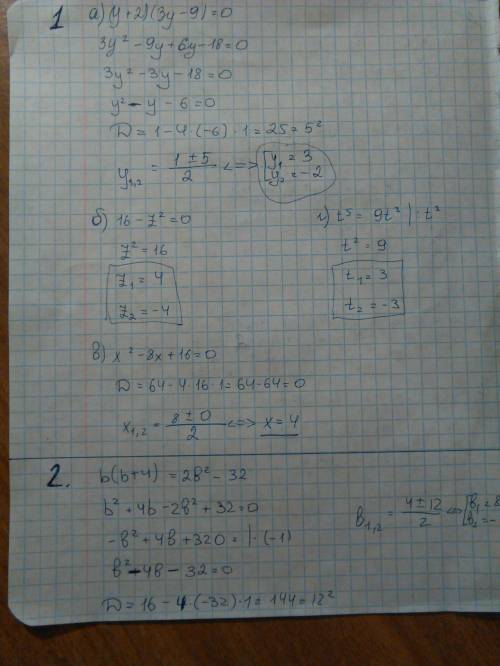 1 а) (y+2)(3y-9)=0
3y² -9y+6y-18=0
3y² -3y-18=0
y² - y - 6=0
D = 1-4·(-6)·1=25=5²
y₁,₂ = (1±5)/2 <=> [y₁ = 3
y₂ = -2
б) 16 - z² =0
z² = 16
z₁ = 4
z₂ = -4
г) t⁵ = 9t³ |: t³
t² = 9
t₁ = 3
t₂ = -3
в) x² -8x+16=0
D = 64-4·16·1=64-64=0
x₁,₂ = (8±0)/2 <=> x=4
2. b(b+4) = 2b² - 32
b² +4b-2b² +32=0
-b² +4b+320= |·(-1)
b² -4b-32=0
D = 16 - 4·(-32)·1=144=12²
b₁,₂ = (4±12)/2 <=> [b₁ = 8
b₂ = -